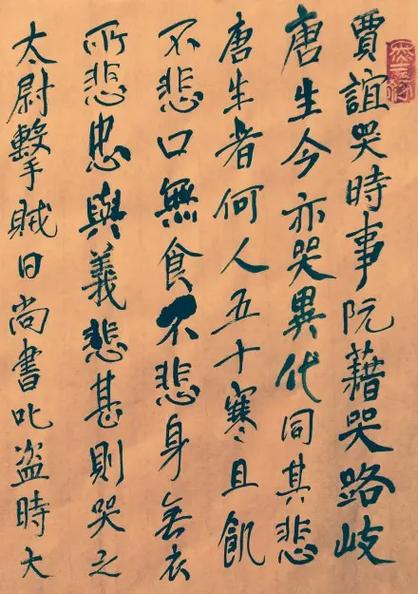 賈誼哭時事阮藉哭路岐
唐生今亦哭異代同其悲
唐生者何人五十寒且飢
不悲口無食不悲身無衣
所悲忠與義悲甚則哭之
太尉擊賊日尚書叱盜時大